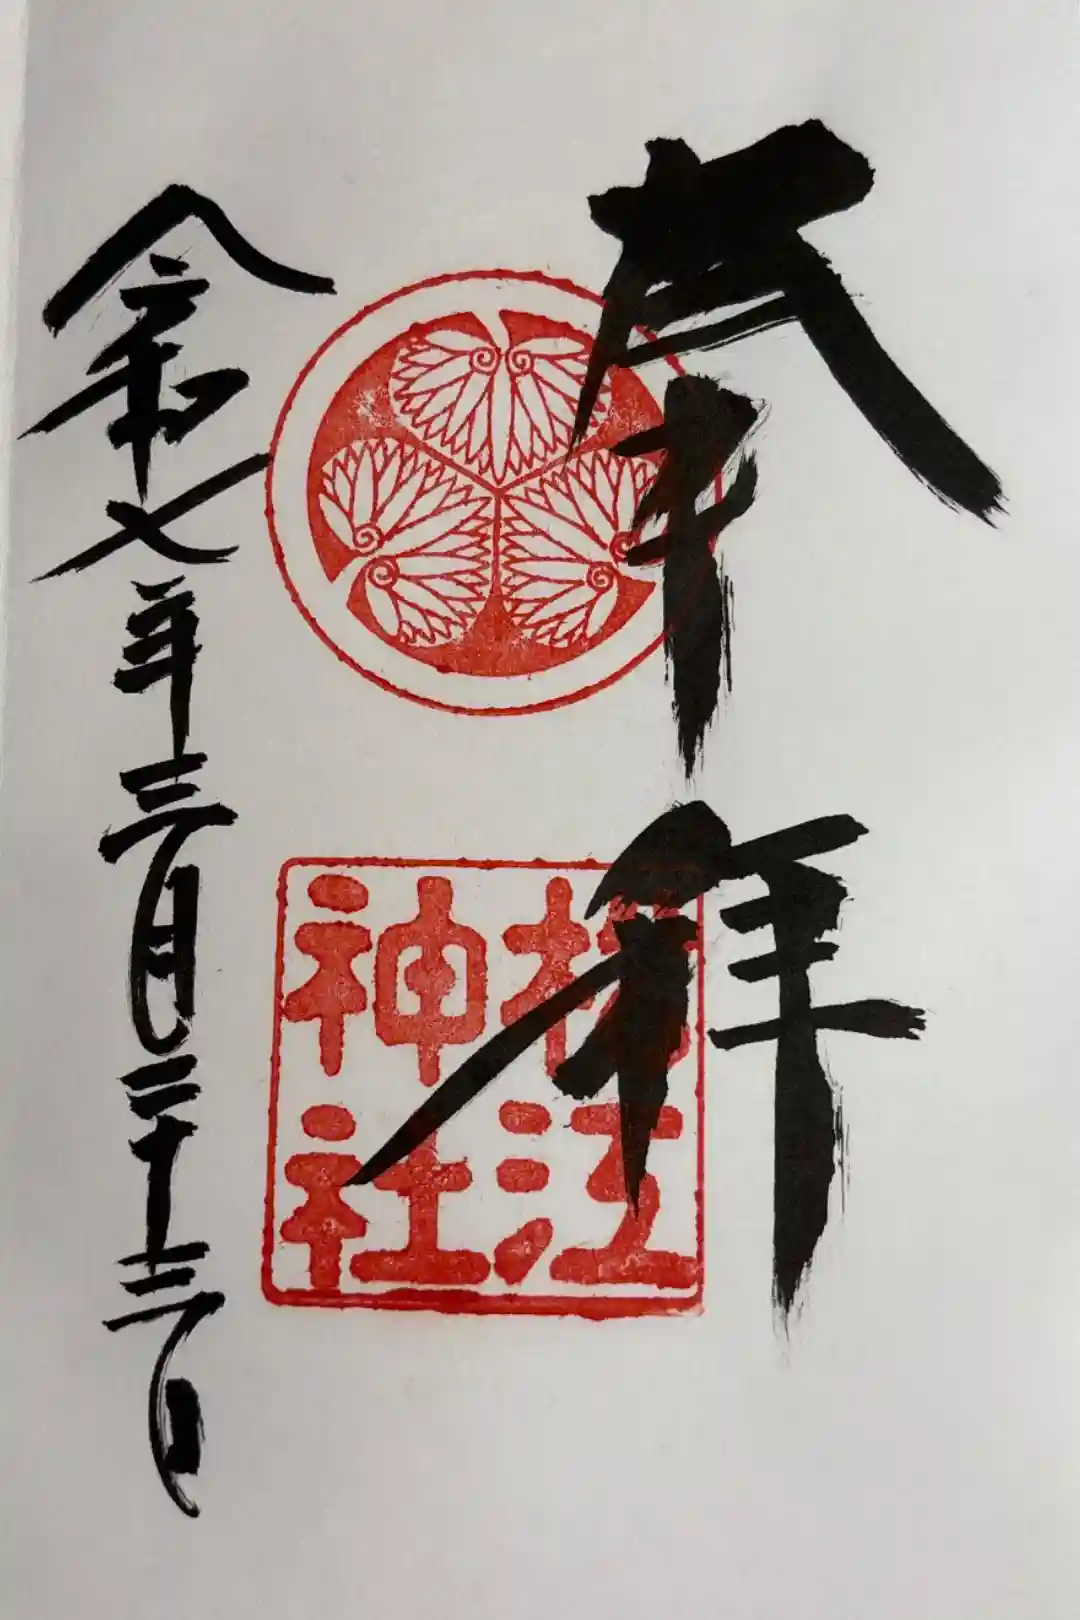 奉拝
松江
神社
令和七年三月二十三日